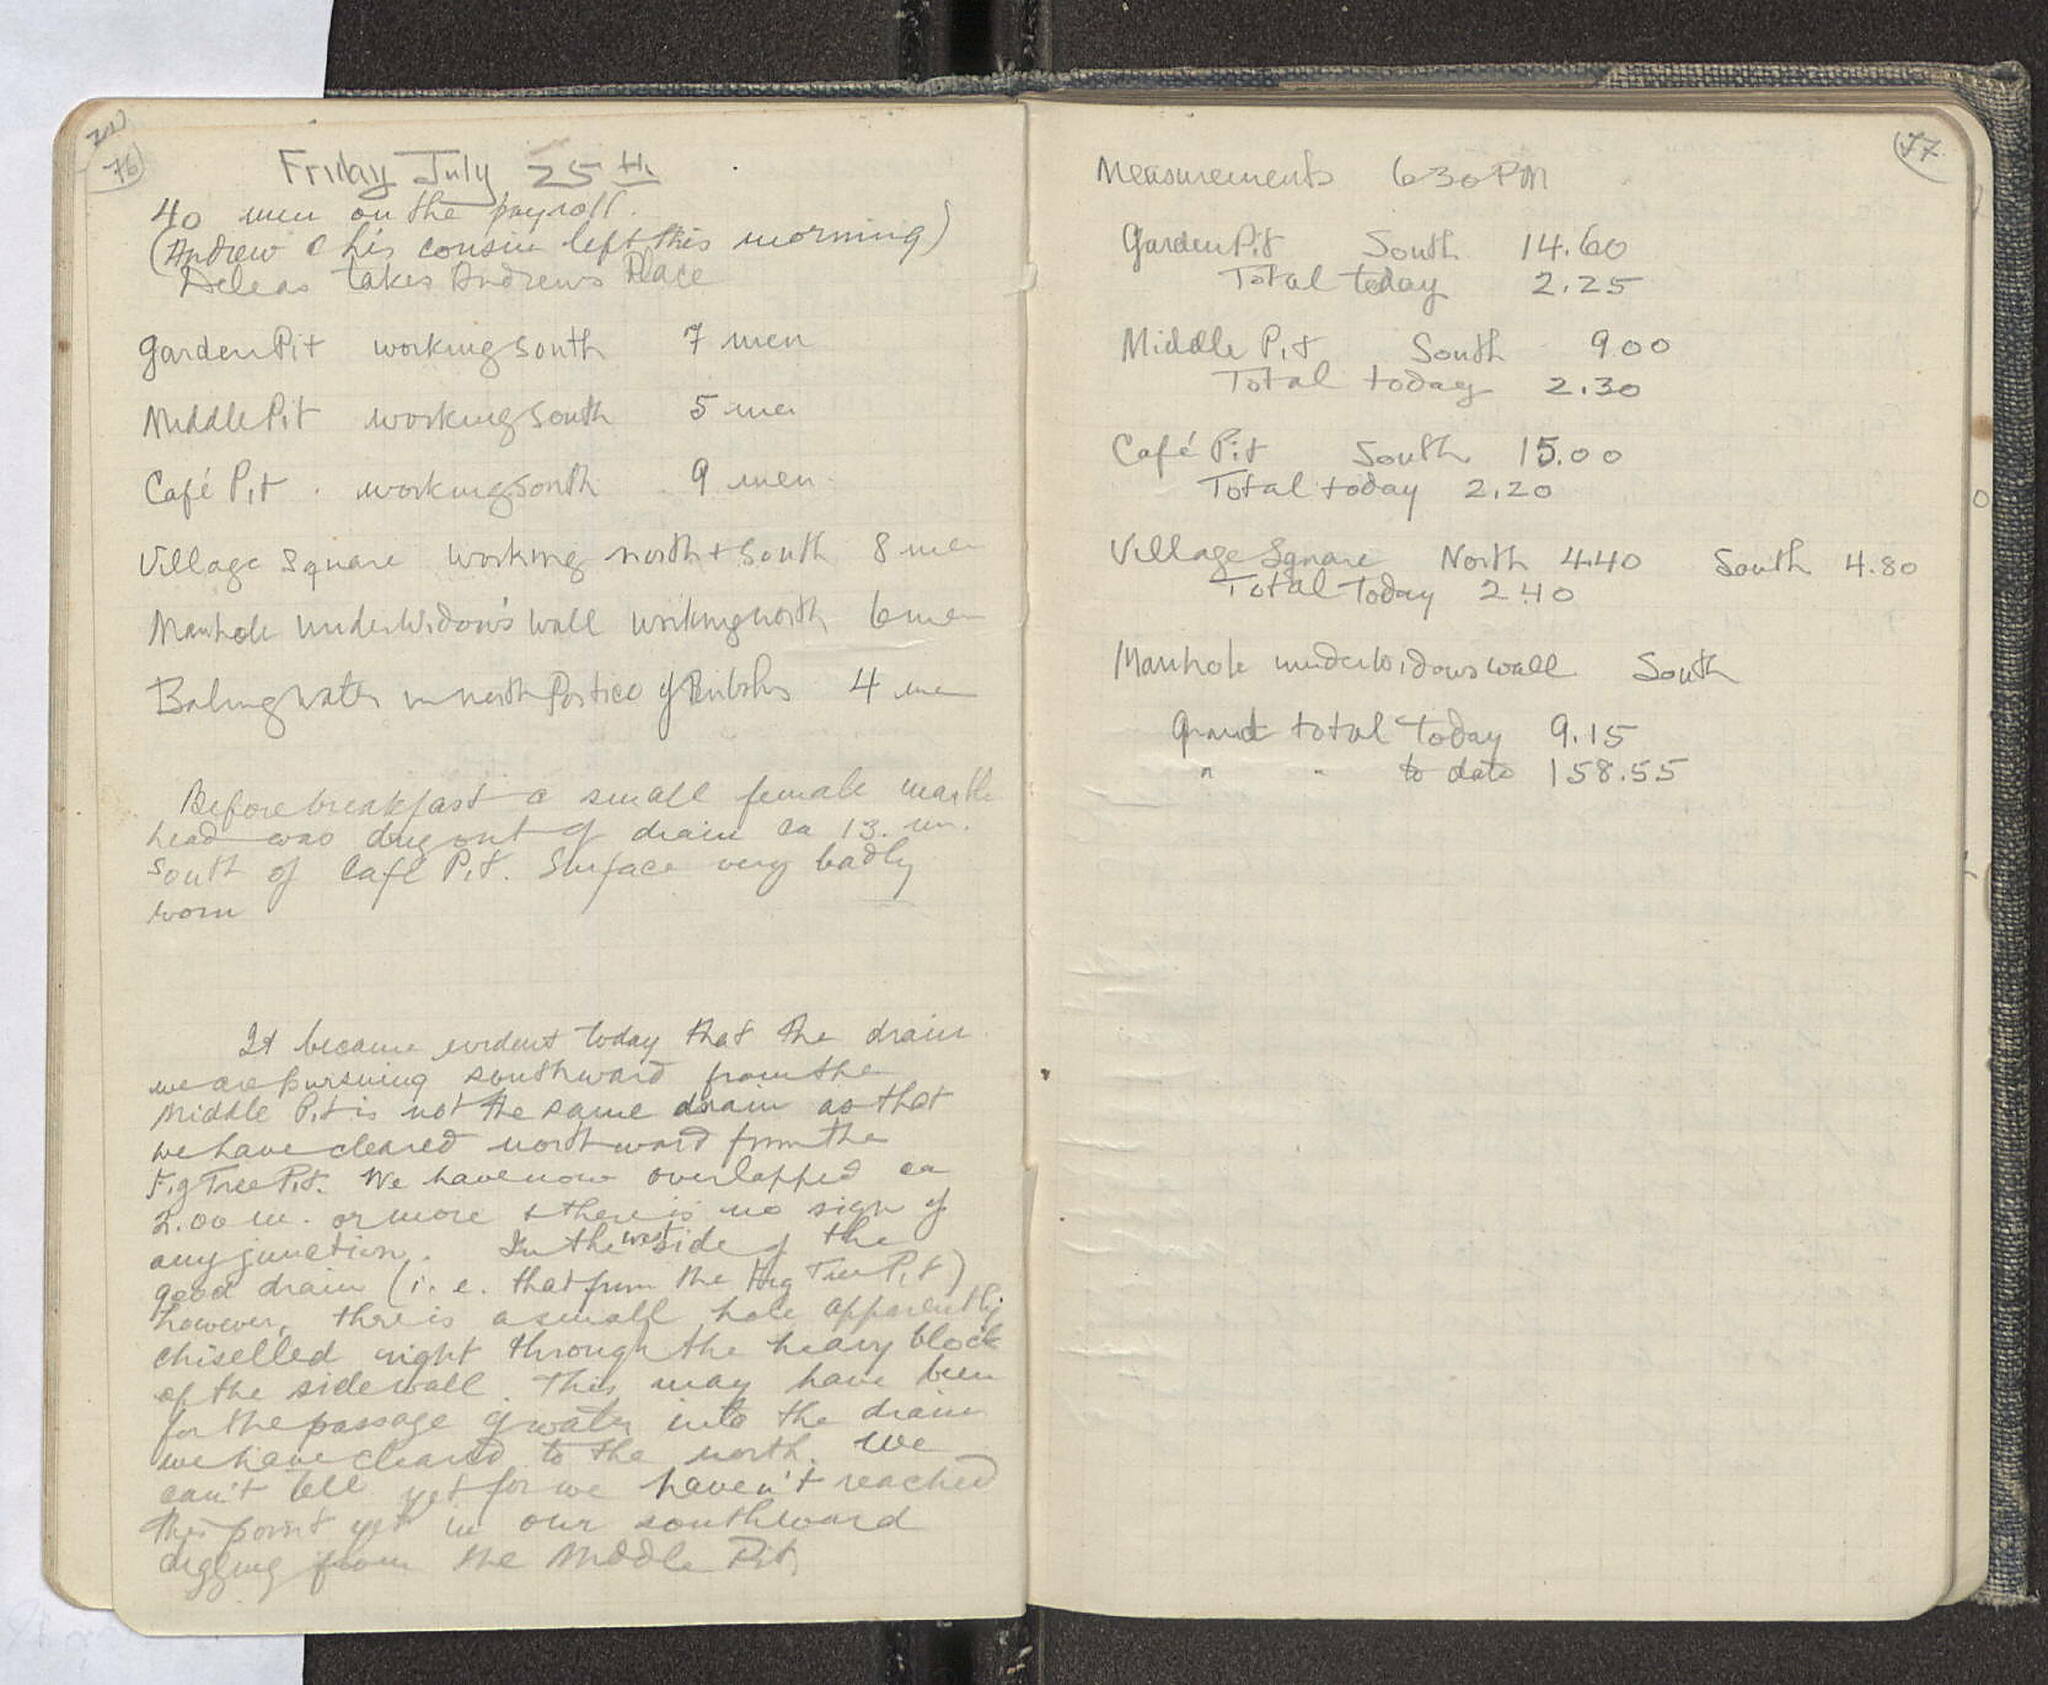 76
Friday July 25th
40 men on the payroll.
(Andrew & his cousin left this morning)
Deleas takes Andrews Place
Garden Pit working south 7 men
Middle Pit working south 5 men
Café Pit . working south 9 men
Village Square working north + south 8 men
Manhole under Widow's Wall working north 6 men
Baling Water in north Portico of 4 men
Before breakfast a small female marble
head was dug out of drain ca 13. m.
south of Café Pit. Surface very badly
worn
It became evident today that the drain
we are pursuing southward from the
Middle Pit is not the same drain as that
we have cleared northward from the
Fig Tree Pit. We have now overlapped ca
2.00 m. or more & there is no sign of
any junction. In the west side of the
good drain (i.e. that from the Fig Tree Pit)
however, there is a small hole apparently
chiselled right through the heavy block
of the sidewall. This may have been
for the passage of water into the drain
we have cleared to the north. We
can't tell yet for we haven't reached
this point yet in our southward
digging from the Middle Pit
77
Measurements 630 PM
Garden Pit South 14.60
Total today 2.25
Middle Pit South 9.00
Total today 2.30
Café Pit South 15.00
Total today 2.20
Village Square North 4.40 South 4.80
Total Today 2.40
Manhole under Widows wall South
Grand total Today 9.15
" " to date 158.55